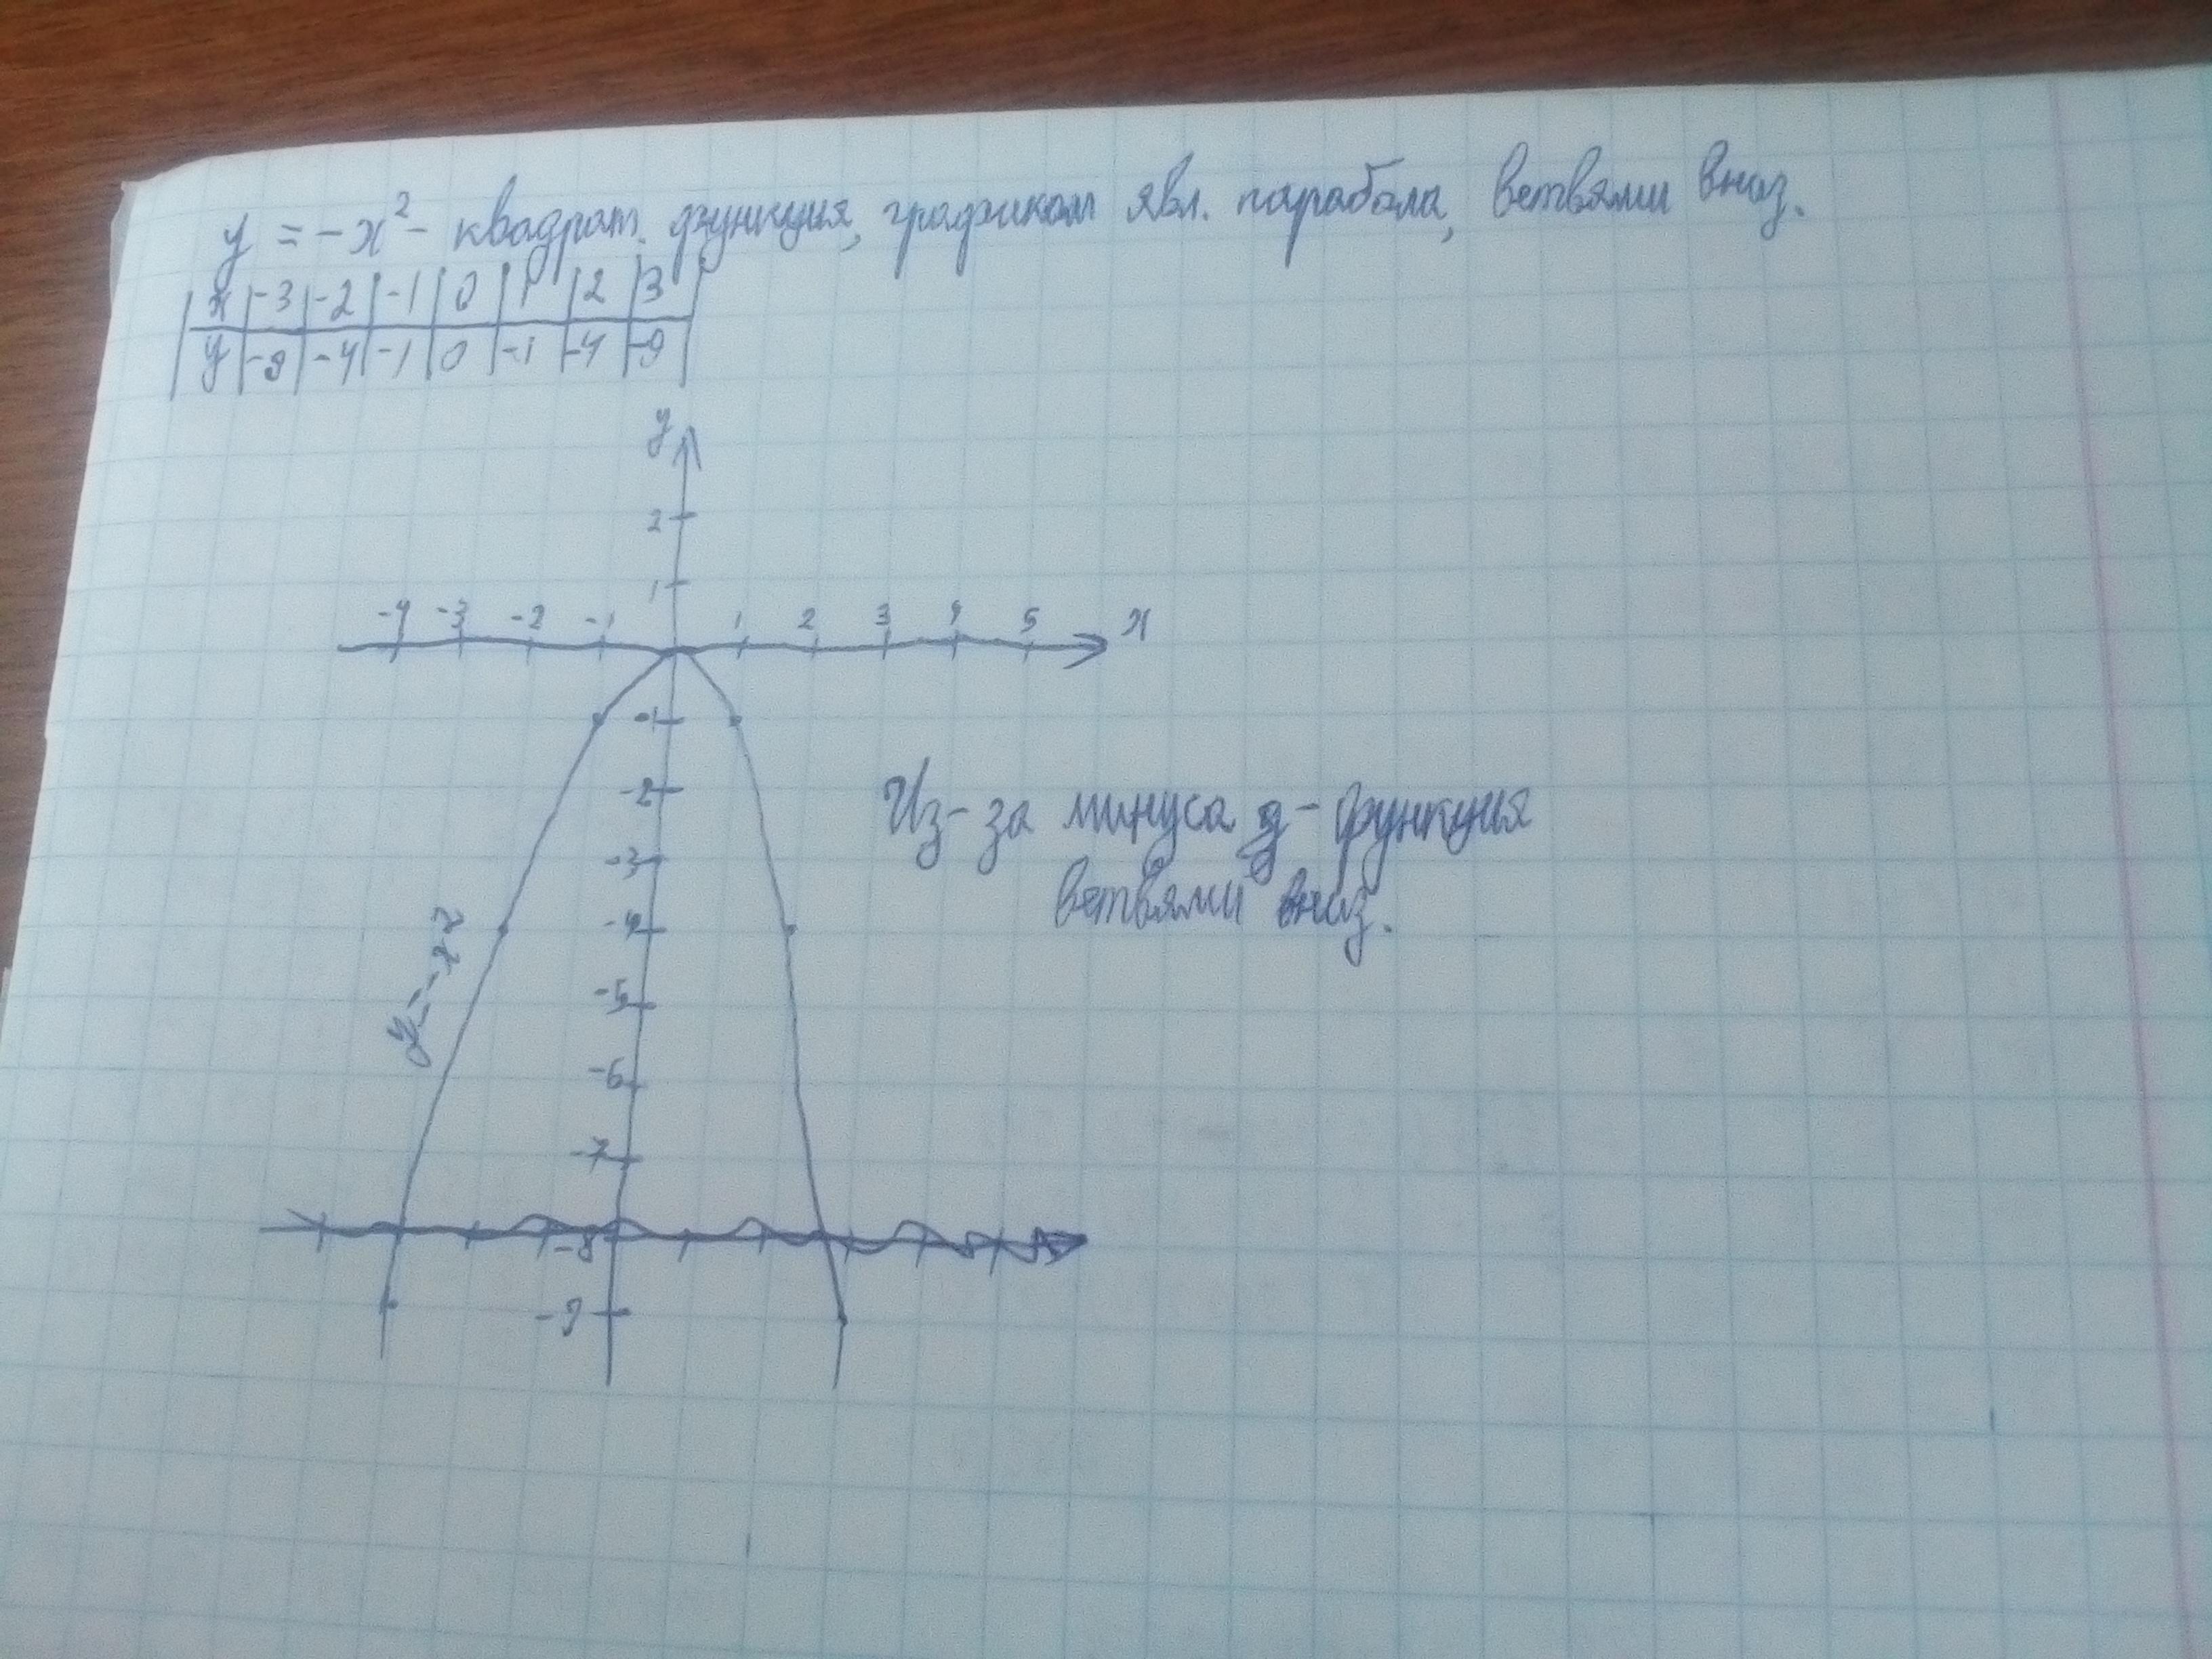 y = -x² - квадрат. функция, графиком явл. парабола, ветвями вниз.
x -3 -2 -1 0 1 2 3
y -9 -4 -1 0 -1 -4 -9
y
2
1
-4 -3 -2 -1 1 2 3 4 5 x
-1
-2
Из-за минуса y - функция
-3
ветвями вниз.
-4
y = -x²
-5
-6
-7
-8
-9